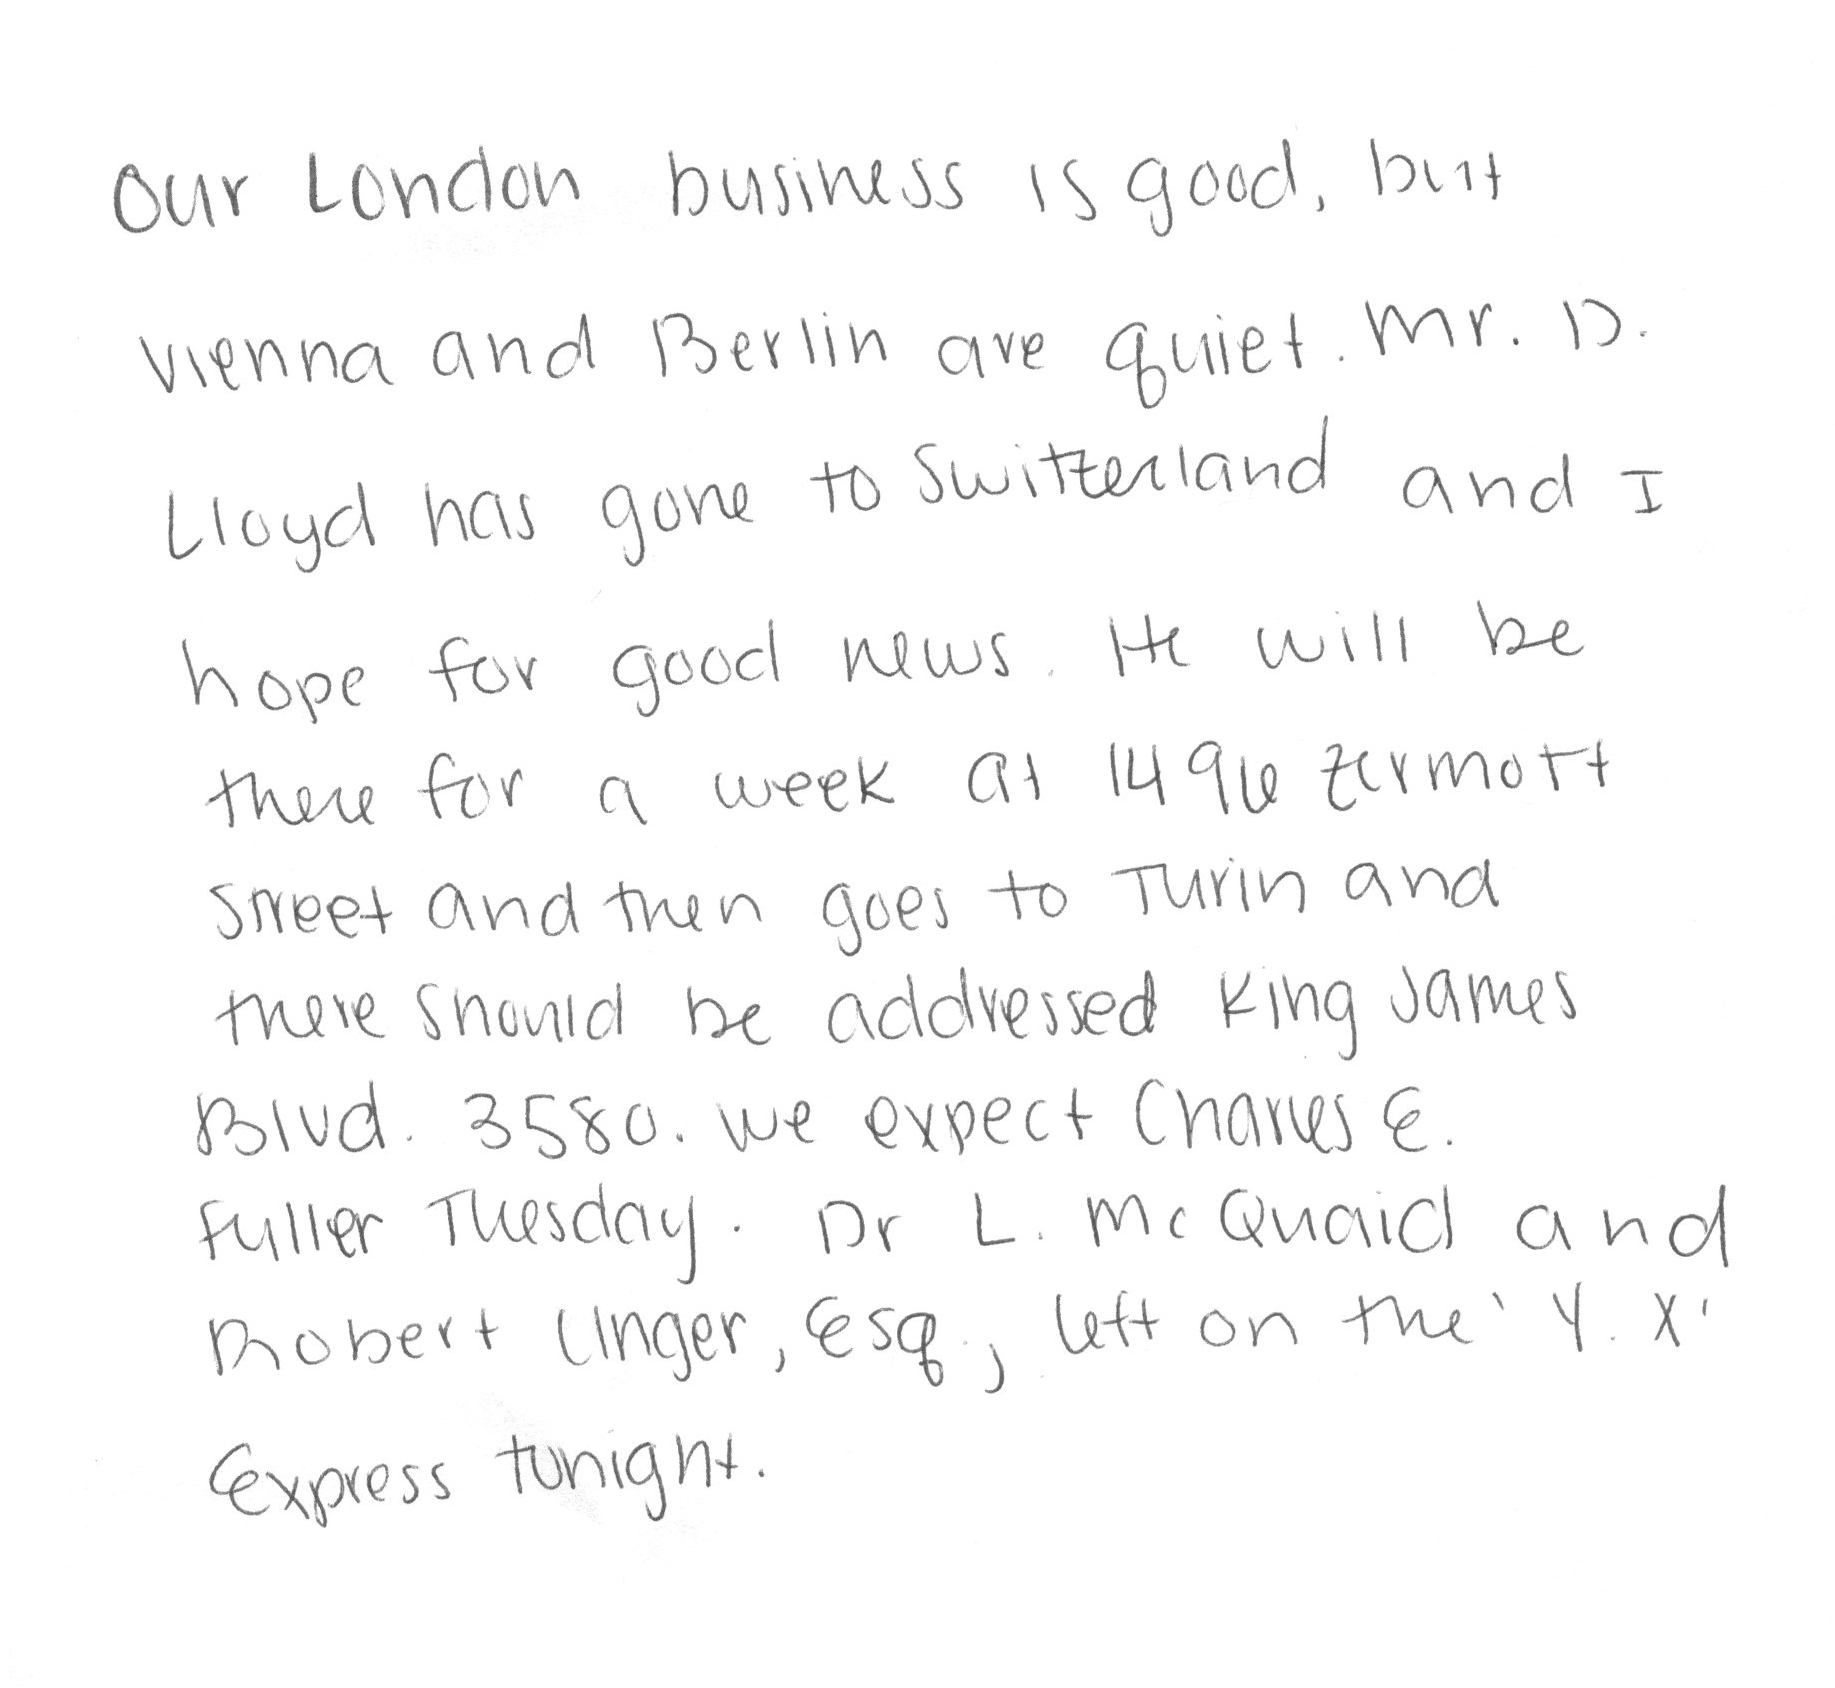 Our London business is good, but
Vienna and Berlin are quiet. Mr. D.
Lloyd has gone to Switzerland and I
hope for good news. He will be
there for a week at 1496 Zermott
Street and then goes to Turin and
there should be addressed King James
Blvd. 3580. We expect Charles E.
Fuller Tuesday. Dr L. McQuaid and
Robert Unger, Esq., left on the 'Y. X'
Express tonight.